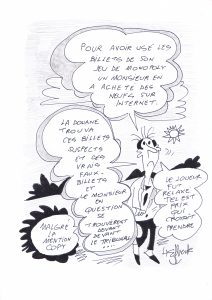 POUR AVOIR USÉ LES
BILLETS DE SON
JEU DE MONOPOLY
UN MONSIEUR EN
A ACHETÉ DES
NEUFS SUR
INTERNET
LA DOUANE
TROUVA
CES BILLETS
SUSPECTS
ET DES
VRAIS
FAUX-
BILLETS
ET
LE MONSIEUR
EN
QUESTION
SE
TROUVÈRENT
DEVANT
DEVANT
LE TRIBUNAL...
MALGRÉ
LA
MENTION
COPY
LE JOUEUR
FUT
RELAXÉ
TEL EST
PRIX
QUI
CROYAIT
PRENDRE